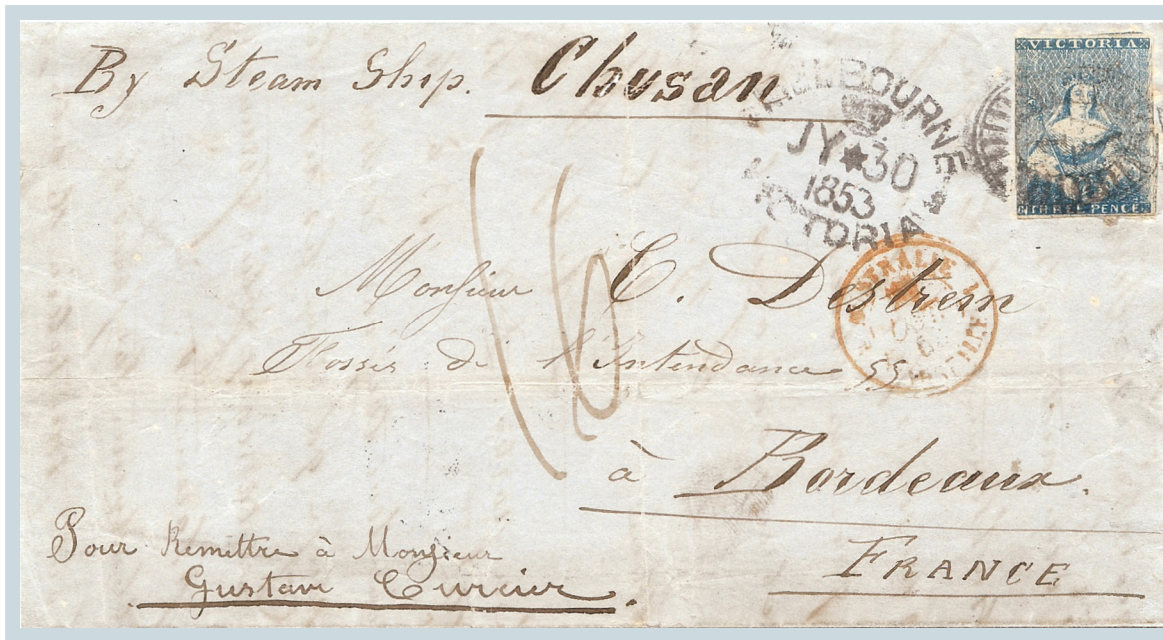 By Steam Ship. Chusan
VICTORIA
THREE PENCE
MELBOURNE
JY 30
1853
VICTORIA
16
Monsieur C. Destrem
Fossés de l'Intendance 55
à Bordeaux.
FRANCE
Pour Remettre à Monsieur
Gustave Curcier.